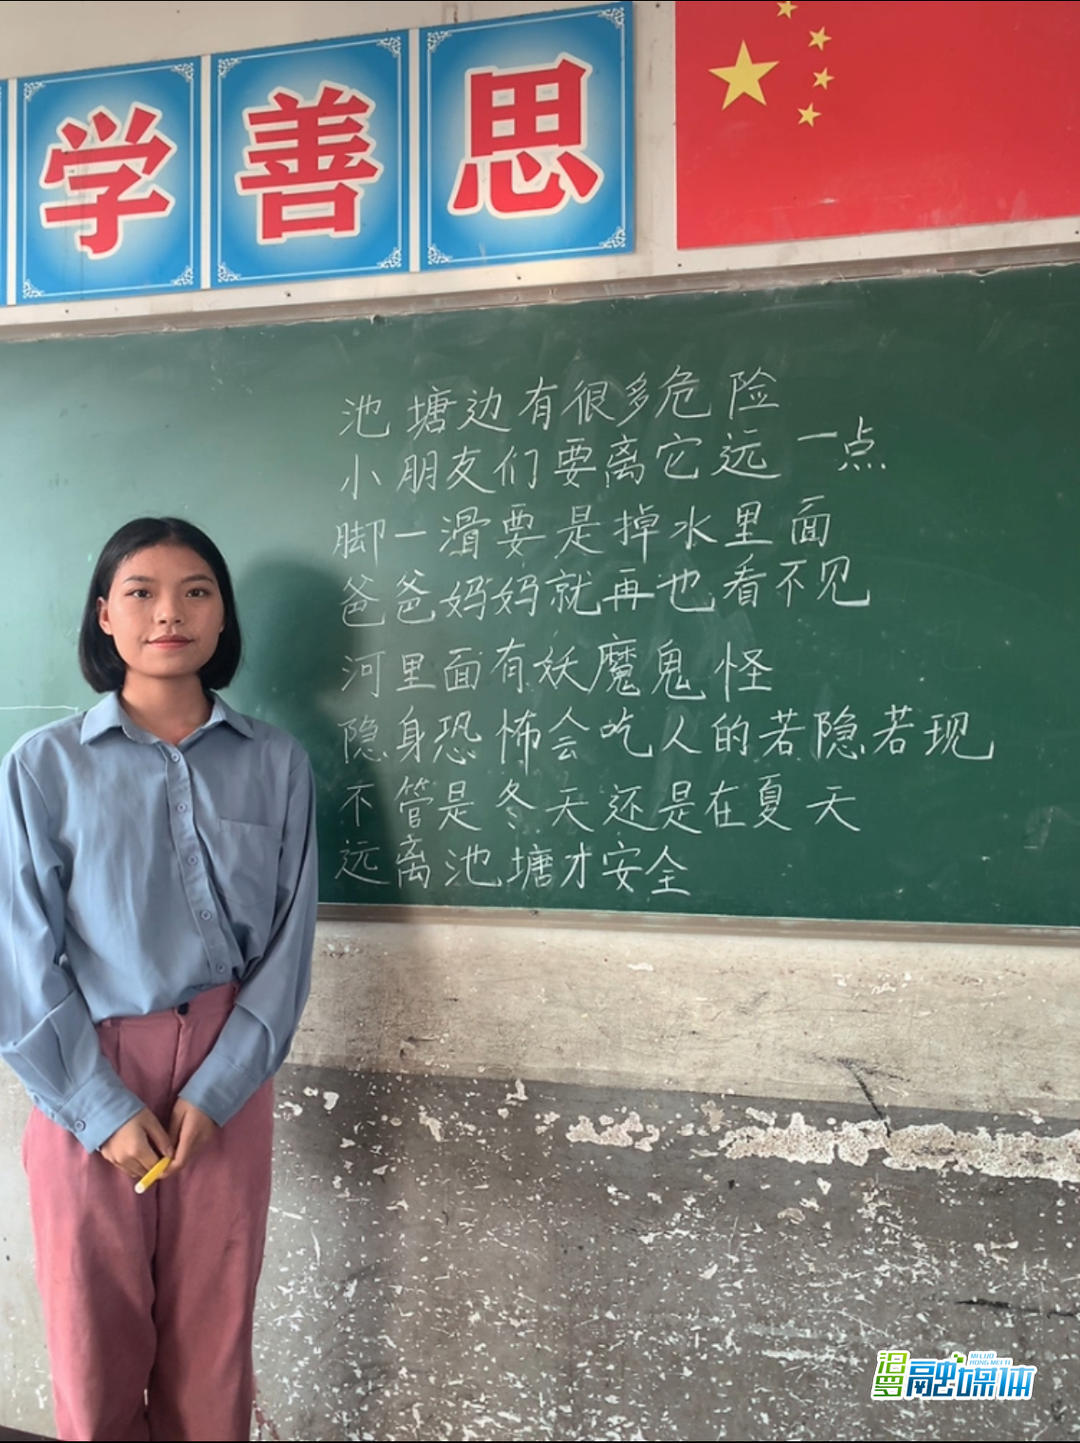 学善思
池塘边有很多危险
小朋友们要离它远一点
脚一滑要是掉水里面
爸爸妈妈就再也看不见
河里面有妖魔鬼怪
隐身恐怖会吃人的若隐若现
不管是冬天还是在夏天
远离池塘才安全
汨罗融媒体
MI LUO
RONG MEI TI